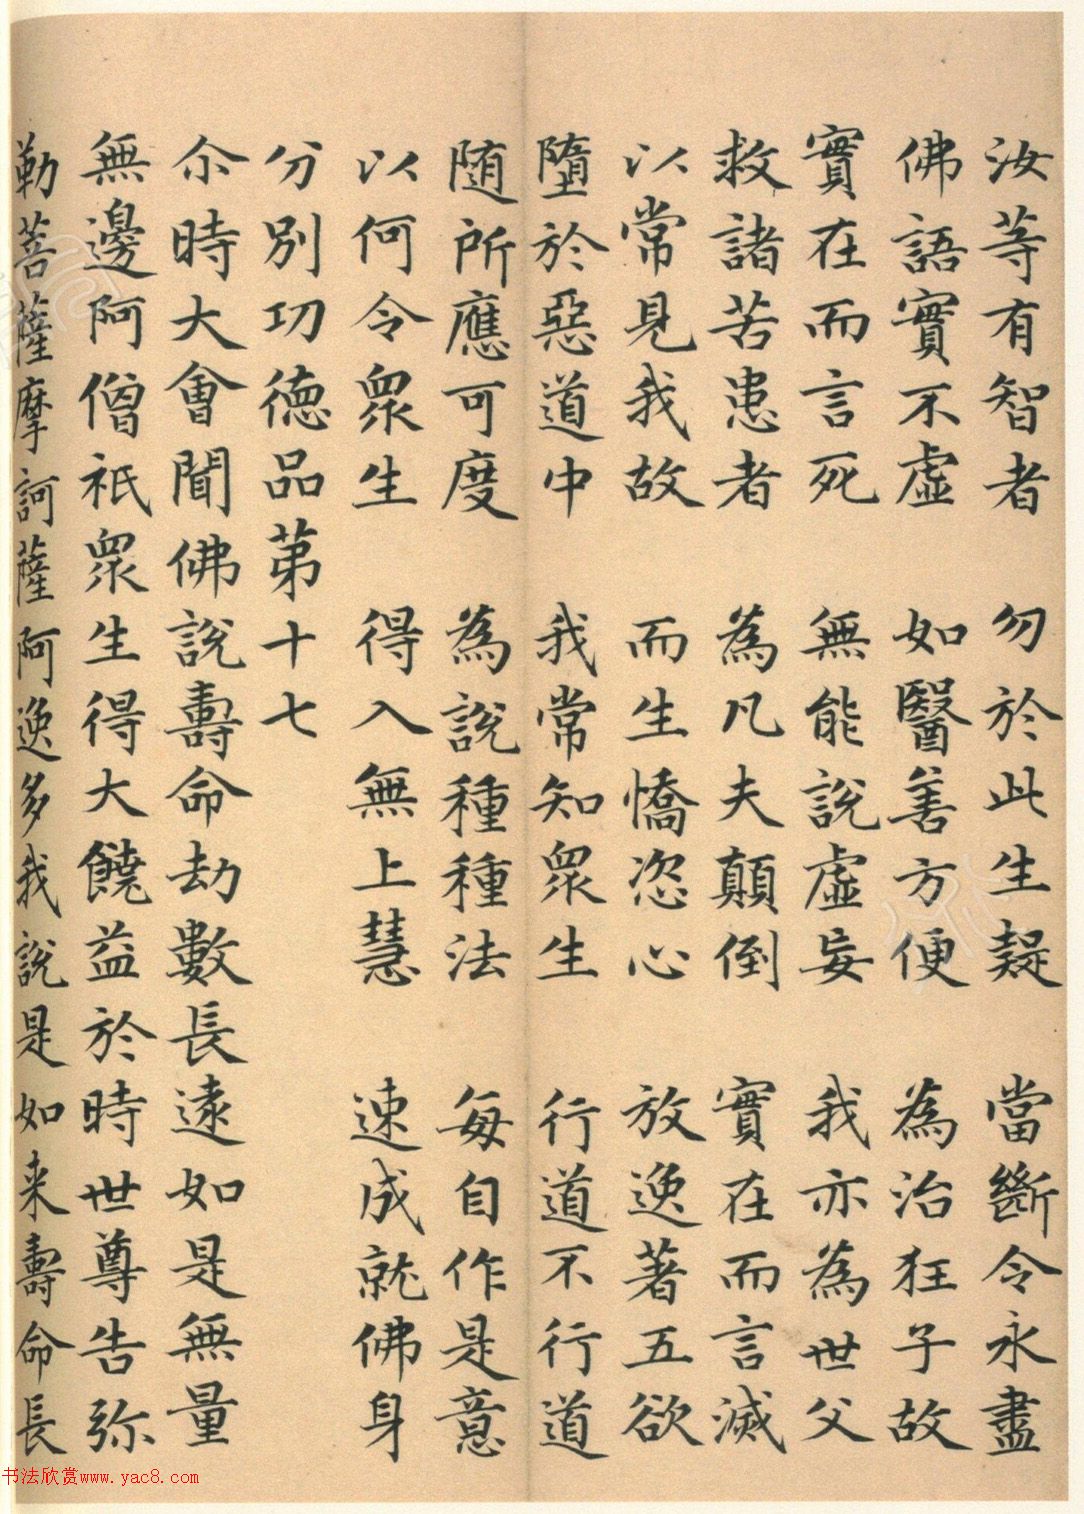 汝等有智者　勿於此生疑　當斷令永盡
佛語實不虛　如醫善方便　為治狂子故
實在而言死　無能說虛妄　我亦為世父
救諸苦患者　為凡夫顛倒　實在而言滅
以常見我故　而生憍恣心　放逸著五欲
墮於惡道中　我常知眾生　行道不行道
随所應可度　為說種種法　每自作是意
以何令眾生　得入無上慧　速成就佛身
分別功德品第十七
尒時大會聞佛說壽命劫數長遠如是無量
無邊阿僧祇眾生得大饒益於時世尊告弥
勒菩薩摩訶薩阿逸多我說是如来壽命長
书法欣赏www.yac8.com